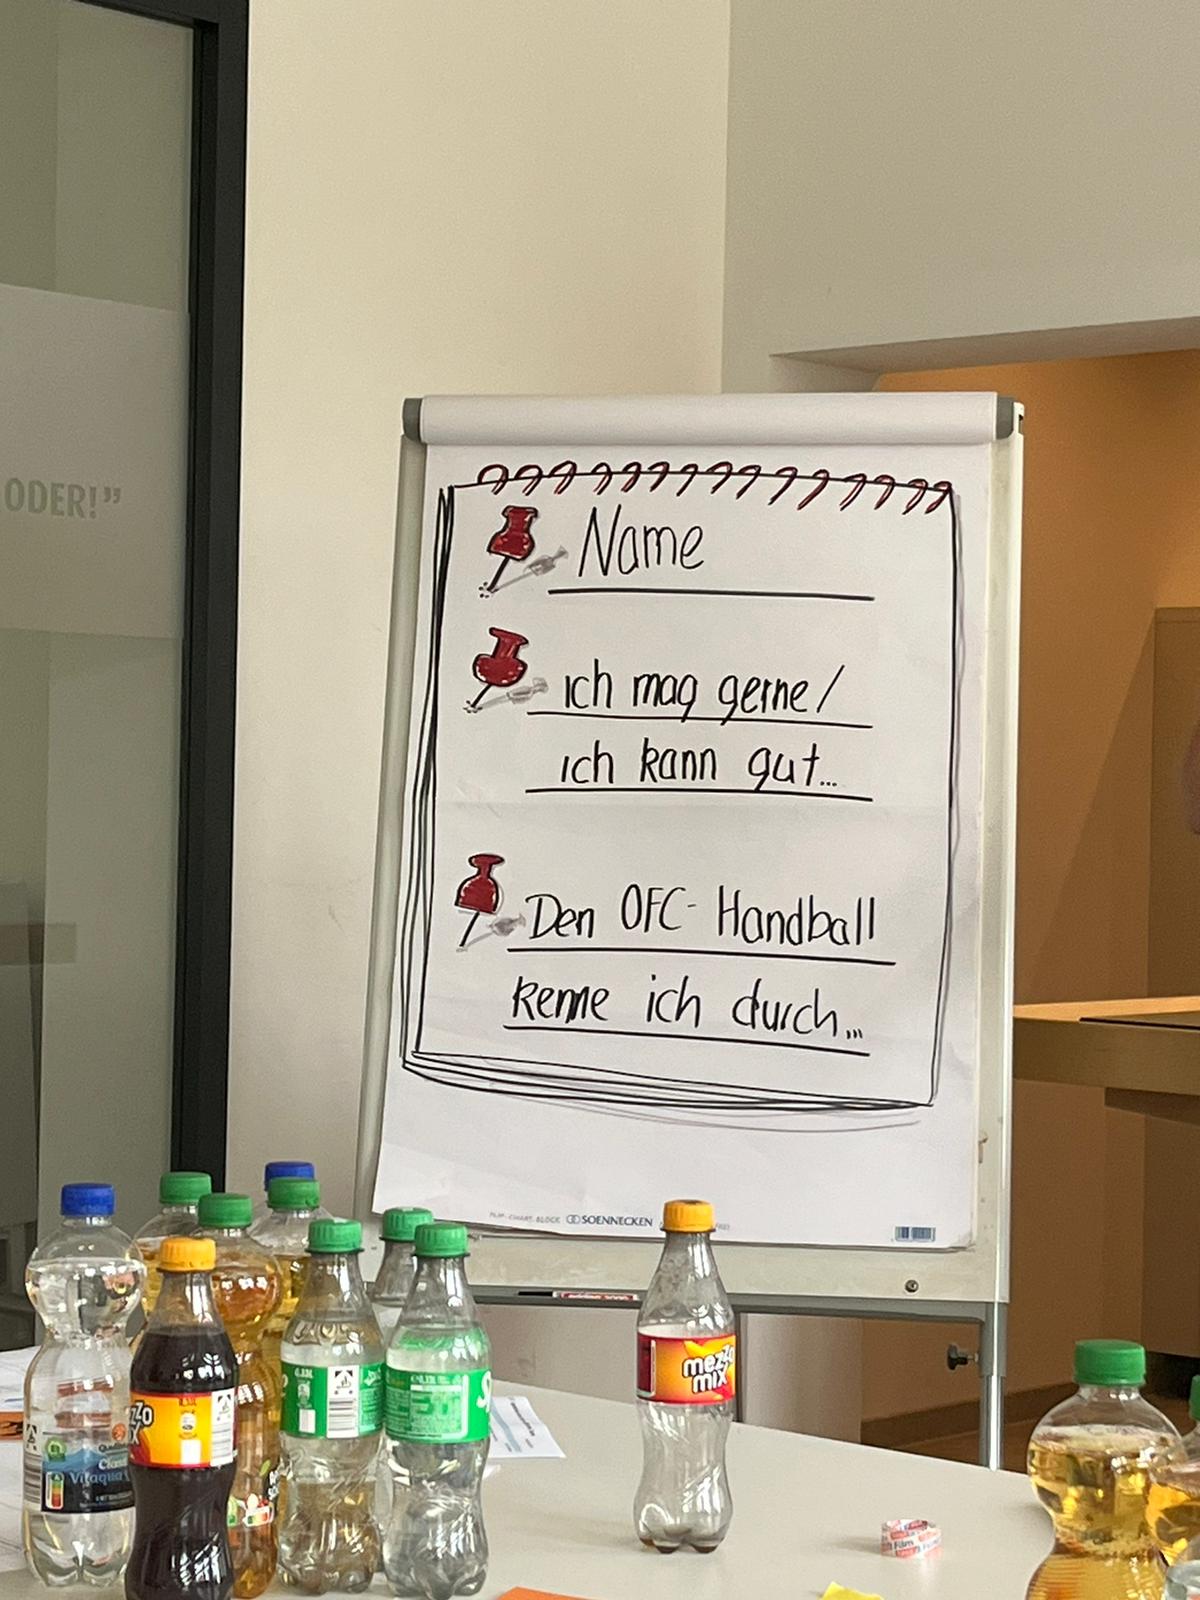 ODER!”
Name
ich mag gerne/
ich kann gut...
Den OFC- Handball
kenne ich durch...
FLIP-CHART-BLOCK SOENNECKEN
mezzo
mix
0,33L
Vitaqua
Film